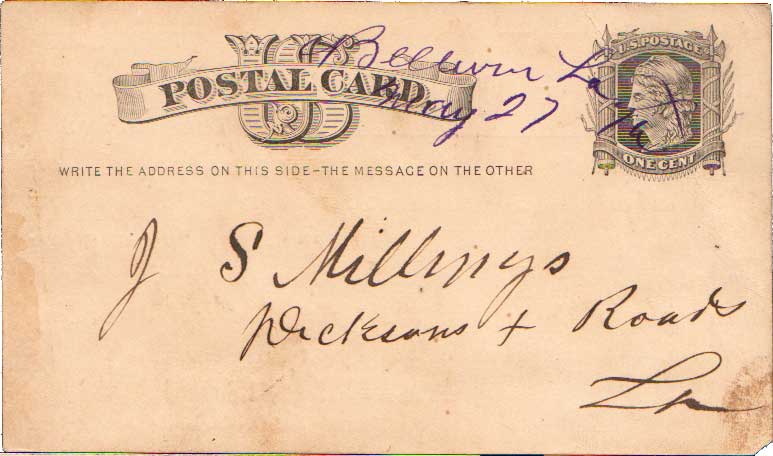 US
POSTAL CARD.
U.S. POSTAGE
ONE CENT
May 27
WRITE THE ADDRESS ON THIS SIDE-THE MESSAGE ON THE OTHER
J S Millings
Dicksons + Roads
La